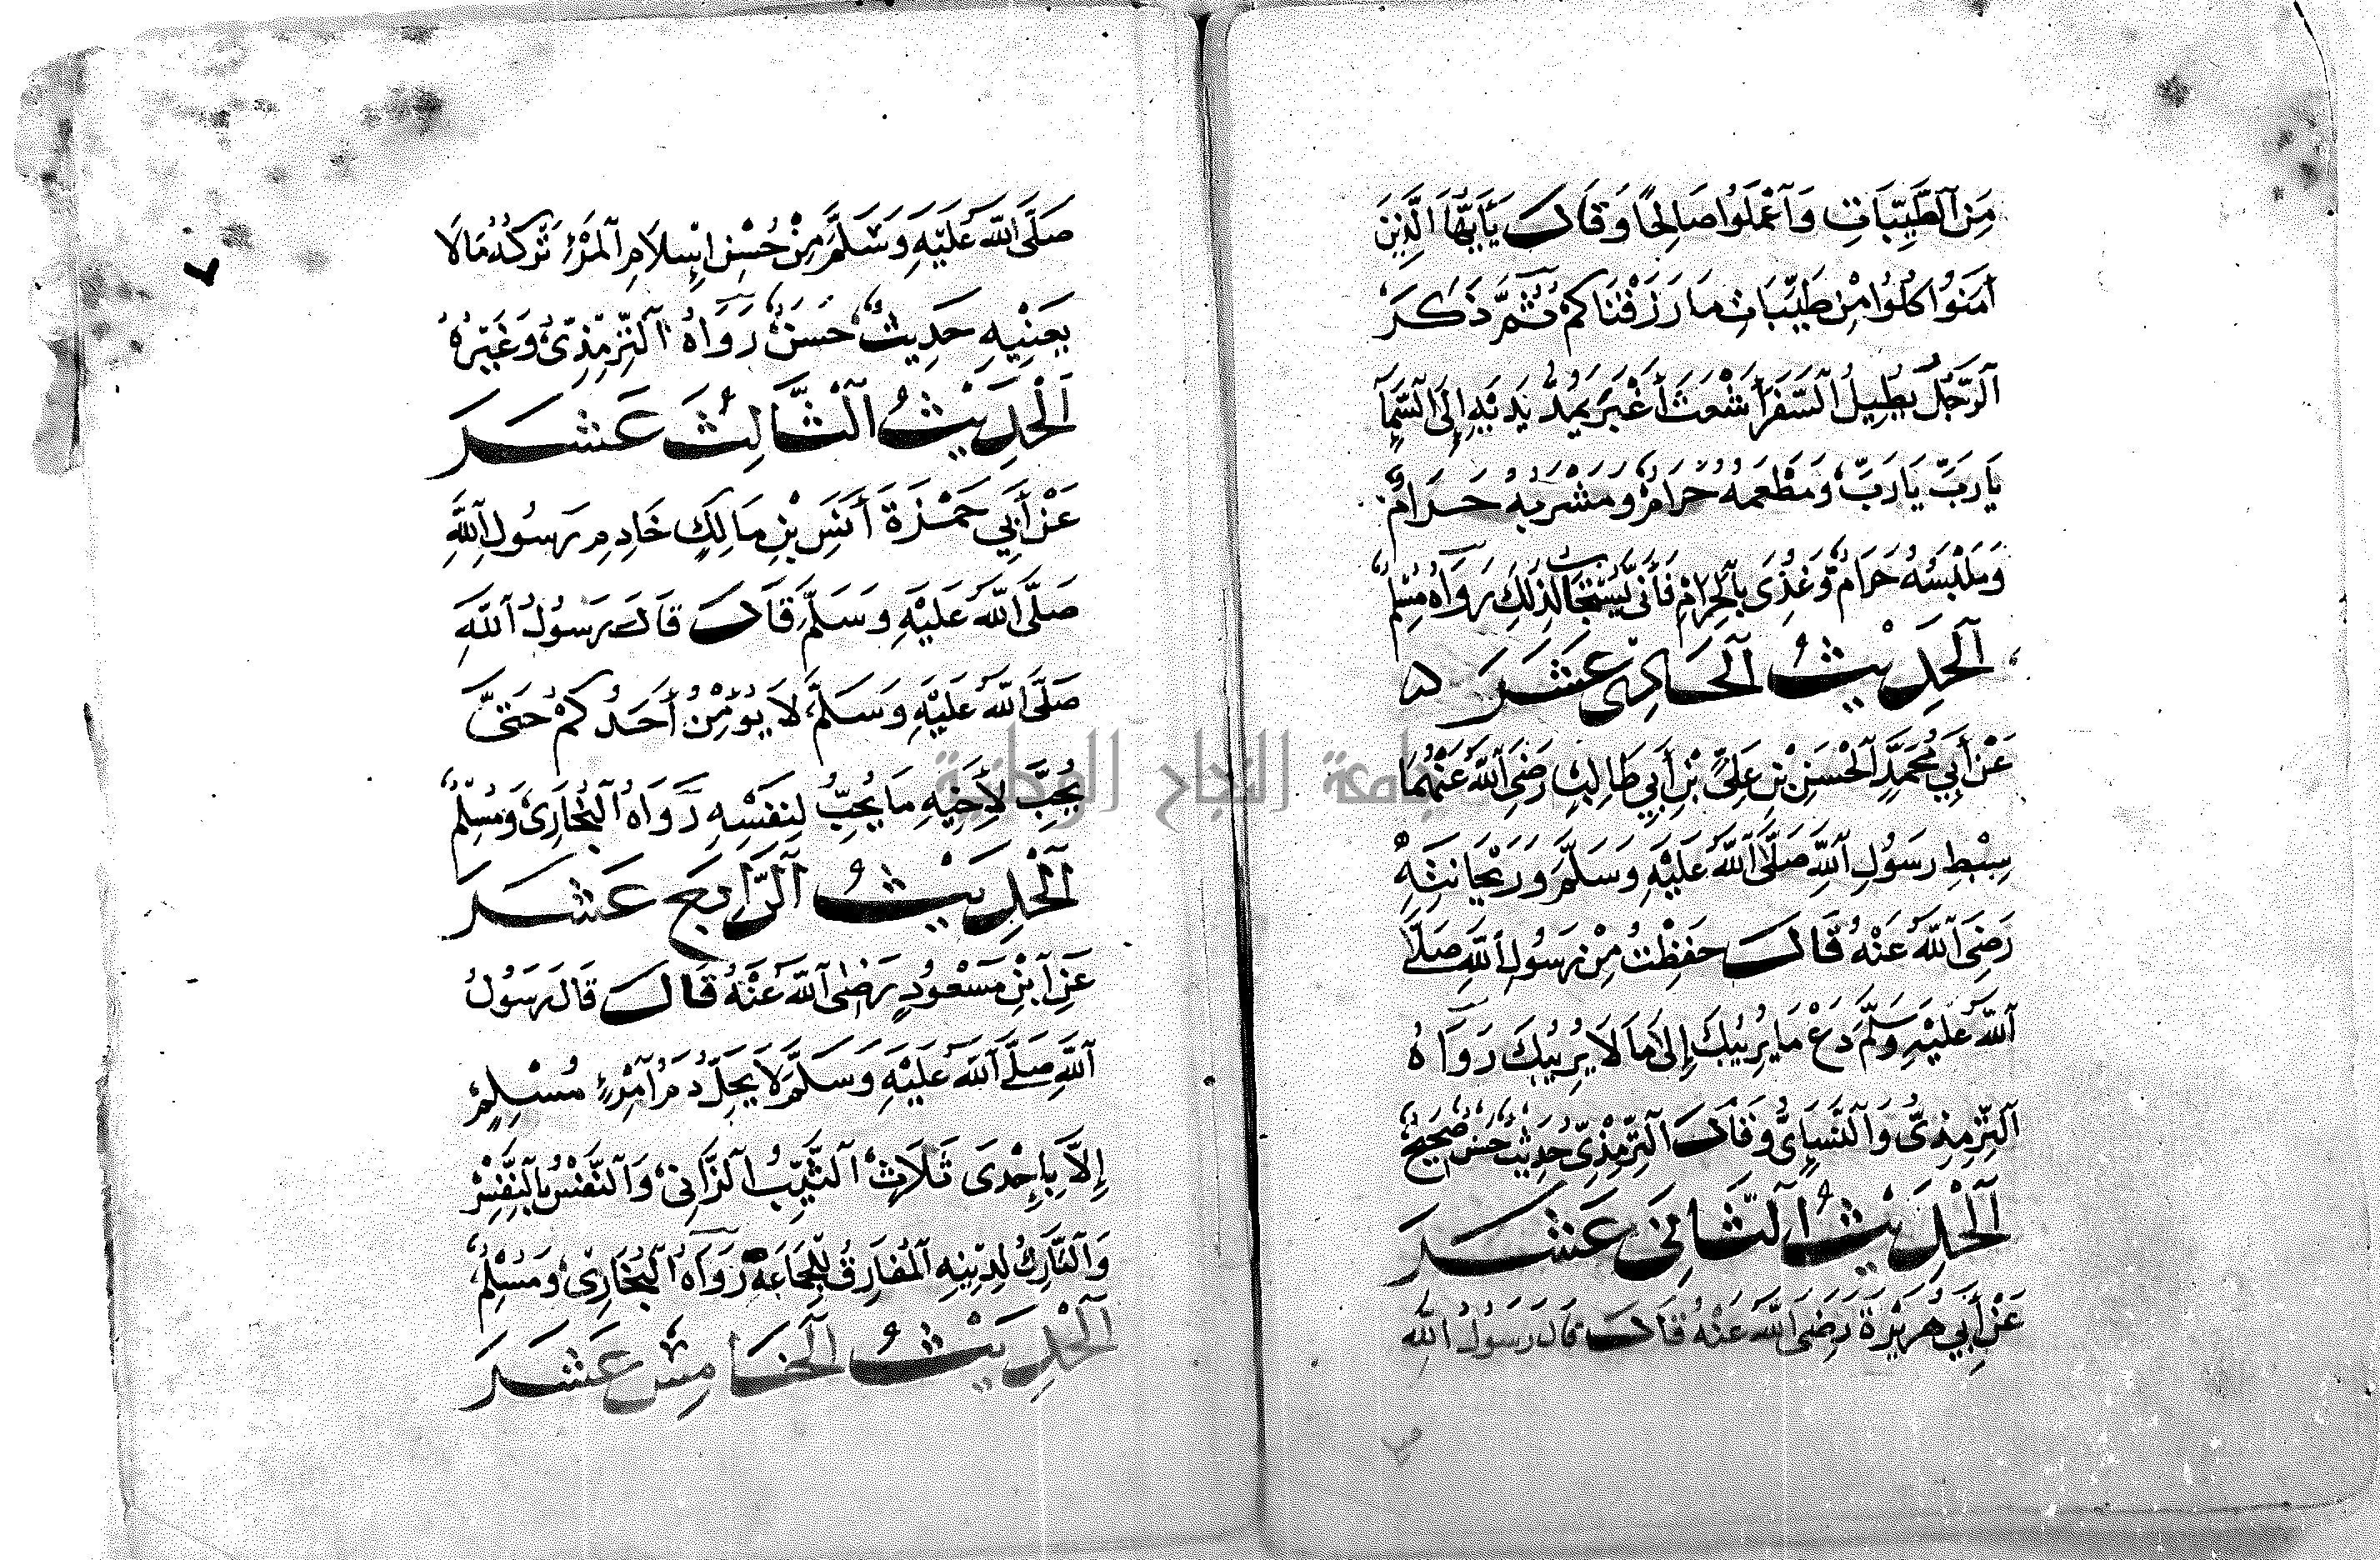 مِنَ ٱلطَّيِّبَاتِ وَٱعْمَلُوا صَالِحًا وَقَالَ يَأَيُّهَا الَّذِينَ
اٰمَنُوا كُلُوا مِنْ طَيِّبَاتِ مَا رَزَقْنَاكُمْ ثُمَّ ذَكَرَ
ٱلرَّجُلَ يُطِيلُ ٱلسَّفَرَ أَشْعَثَ أَغْبَرَ يَمُدُّ يَدَيْهِ إِلَى ٱلسَّمَآءِ
يَا رَبِّ يَا رَبِّ وَمَطْعَمُهُ حَرَامٌ وَمَشْرَبُهُ حَرَامٌ
وَمَلْبَسُهُ حَرَامٌ وَغُذِىَ بِٱلْحَرَامِ فَأَنَّى يُسْتَجَابُ لِذَلِكَ رَوَاهُ مُسْلِمٌ
ٱلْحَدِيْثُ ٱلْحَادِىْ عَشَرَ
عَنْ أَبِي مُحَمَّدٍ ٱلْحَسَنِ بْنِ عَلِىِّ بْنِ أَبِي طَالِبٍ رَضِىَ ٱللَّهُ عَنْهُمَا
سِبْطِ رَسُوْلِ ٱللَّهِ صَلَّى ٱللَّهُ عَلَيْهِ وَسَلَّمَ وَرَيْحَانَتِهِ
رَضِىَ ٱللَّهُ عَنْهُ قَالَ حَفِظْتُ مِنْ رَسُوْلِ ٱللَّهِ صَلَّى
ٱللَّهُ عَلَيْهِ وَسَلَّمَ دَعْ مَا يَرِيْبُكَ إِلَى مَا لَا يَرِيْبُكَ رَوَاهُ
ٱلتِّرْمِذِىُّ وَٱلنَّسَاِىُّ وَقَالَ ٱلتِّرْمِذِىُّ حَدِيْثٌ حَسَنٌ صَحِيْحٌ
ٱلْحَدِيْثُ ٱلثَّانِىَ عَشَرَ
عَنْ أَبِي هُرَيْرَةَ رَضِىَ ٱللَّهُ عَنْهُ قَالَ قَالَ رَسُوْلُ ٱللَّهِ
صَلَّى ٱللَّهُ عَلَيْهِ وَسَلَّمَ مِنْ حُسْنِ إِسْلَامِ ٱلْمَرْءِ تَرْكُهُ مَا لَا
يَعْنِيْهِ حَدِيْثٌ حَسَنٌ رَوَاهُ ٱلتِّرْمِذِىُّ وَغَيْرُهُ
ٱلْحَدِيْثُ ٱلثَّالِثَ عَشَرَ
عَنْ أَبِي حَمْزَةَ أَنَسِ بْنِ مَالِكٍ خَادِمِ رَسُوْلِ ٱللَّهِ
صَلَّى ٱللَّهُ عَلَيْهِ وَسَلَّمَ قَالَ قَالَ رَسُوْلُ ٱللَّهِ
صَلَّى ٱللَّهُ عَلَيْهِ وَسَلَّمَ لَا يُؤْمِنُ أَحَدُكُمْ حَتَّى
يُحِبَّ لِأَخِيْهِ مَا يُحِبُّ لِنَفْسِهِ رَوَاهُ ٱلْبُخَارِىُّ وَمُسْلِمٌ
ٱلْحَدِيْثُ ٱلرَّابِعَ عَشَرَ
عَنِ ٱبْنِ مَسْعُوْدٍ رَضِىَ ٱللَّهُ عَنْهُ قَالَ قَالَ رَسُوْلُ
ٱللَّهِ صَلَّى ٱللَّهُ عَلَيْهِ وَسَلَّمَ لَا يَحِلُّ دَمُ ٱمْرِئٍ مُسْلِمٍ
إِلَّا بِإِحْدَى ثَلَاثٍ ٱلثَّيِّبُ ٱلزَّانِى وَٱلنَّفْسُ بِٱلنَّفْسِ
وَٱلتَّارِكُ لِدِيْنِهِ ٱلْمُفَارِقُ لِلْجَمَاعَةِ رَوَاهُ ٱلْبُخَارِىُّ وَمُسْلِمٌ
ٱلْحَدِيْثُ ٱلْخَامِسَ عَشَرَ
جامعة النجاح الوطنية